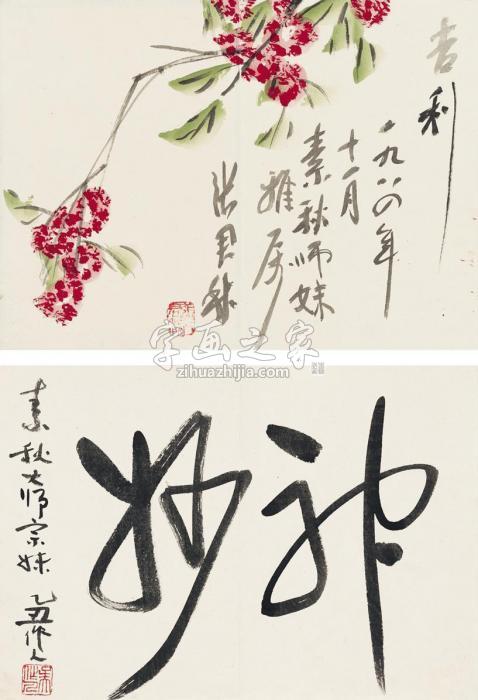 吉利
一九八〇年
十一月
素秋师妹
雅属
张君秋
字画之家
zihuazhijia.com
神妙
素秋大师宗妹
乙丑作人